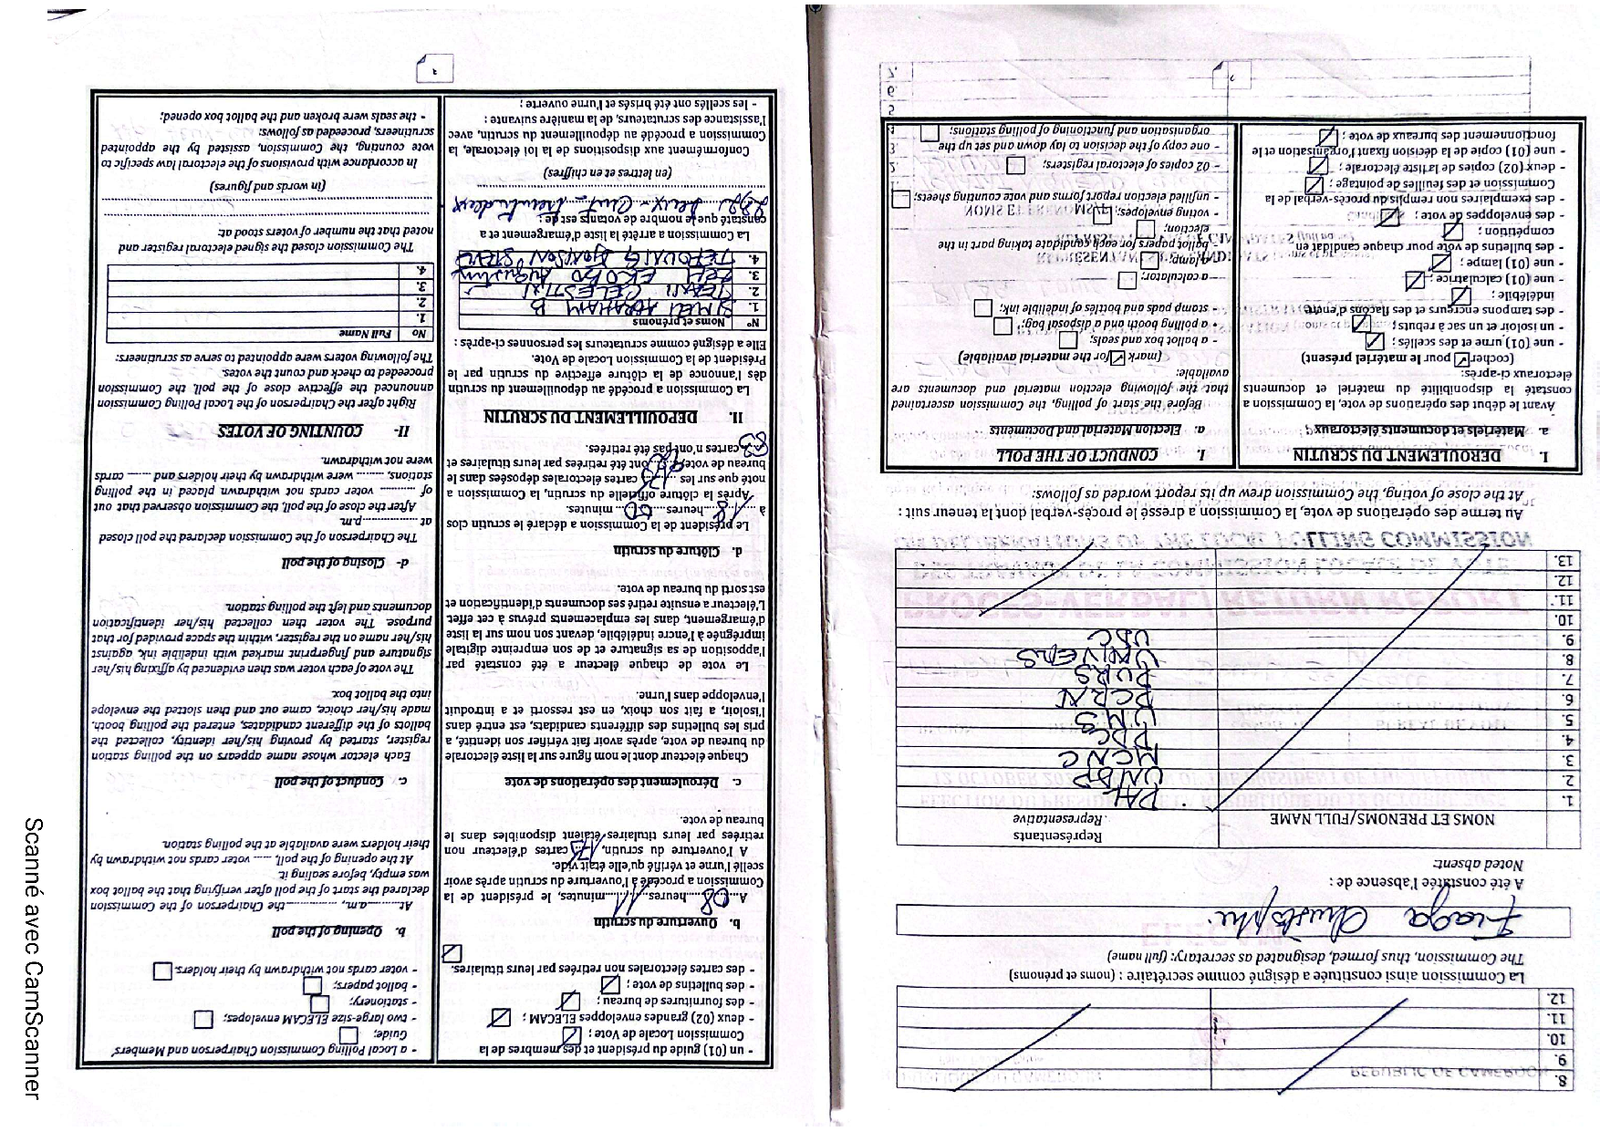 8.
9.
10.
11.
12.
La Commission ainsi constituée a désigné comme secrétaire : (noms et prénoms)
The Commission, thus formed, designated as secretary: (full name)
Christophe
A été constatée l'absence de :
Noted absent:
NOMS ET PRENOMS/FULL NAME
Représentants
Representative
1. PAL
2. UNDP
3. MCNC
4.
5. UMS
6. PCRN
7. PURS
8. UNIVERS
9. UDC
10.
11.
12.
13.
Au terme des opérations de vote, la Commission a dressé le procès-verbal dont la teneur suit :
At the close of voting, the Commission drew up its report worded as follows:
I. DEROULEMENT DU SCRUTIN
a. Matériels et documents électoraux
Avant le début des opérations de vote, la Commission a
constaté la disponibilité du matériel et documents
électoraux ci-après:
(cocher pour le matériel présent)
- une (01) urne et des scellés ;
- un isoloir et un sac à rebuts ;
- des tampons encreurs et des flacons d'encre
indélébile ;
- une (01) calculatrice ;
- une (01) lampe ;
- des bulletins de vote pour chaque candidat en
compétition ;
- des enveloppes de vote ;
- des exemplaires non remplis du procès-verbal de la
Commission et des feuilles de pointage ;
- deux (02) copies de la liste électorale ;
- une (01) copie de la décision fixant l'organisation et le
fonctionnement des bureaux de vote ;
I. CONDUCT OF THE POLL
a. Election Material and Documents
Before the start of polling, the Commission ascertained
that the following election material and documents are
available:
(mark for the material available)
- a ballot box and seals;
- a polling booth and a disposal bag;
- stamp pads and bottles of indelible ink;
- a calculator;
- a lamp;
- ballot papers for each candidate taking part in the
election;
- voting envelopes;
- unfilled election report forms and vote counting sheets;
- 02 copies of electoral registers;
- one copy of the decision to lay down and set up the
organisation and functioning of polling stations;
2
- un (01) guide du président et des membres de la
Commission Locale de Vote ;
- deux (02) grandes enveloppes ELECAM ;
- des fournitures de bureau ;
- des bulletins de vote ;
- des cartes électorales non retirées par leurs titulaires.
b. Ouverture du scrutin
A 08 heures 11 minutes, le président de la
Commission a procédé à l'ouverture du scrutin après avoir
scellé l'urne et vérifié qu'elle était vide.
A l'ouverture du scrutin, 171 cartes d'électeur non
retirées par leurs titulaires étaient disponibles dans le
bureau de vote.
c. Déroulement des opérations de vote
Chaque électeur dont le nom figure sur la liste électorale
du bureau de vote, après avoir fait vérifier son identité, a
pris les bulletins des différents candidats, est entré dans
l'isoloir, a fait son choix, en est ressorti et a introduit
l'enveloppe dans l'urne.
Le vote de chaque électeur a été constaté par
l'apposition de sa signature et de son empreinte digitale
imprégnée à l'encre indélébile, devant son nom sur la liste
d'émargement, dans les emplacements prévus à cet effet.
L'électeur a ensuite retiré ses documents d'identification et
est sorti du bureau de vote.
d. Clôture du scrutin
Le président de la Commission a déclaré le scrutin clos
à 18 heures 00 minutes.
Après la clôture officielle du scrutin, la Commission a
noté que sur les 171 cartes électorales déposées dans le
bureau de vote, ont été retirées par leurs titulaires et
83 cartes n'ont pas été retirées.
II. DEPOUILLEMENT DU SCRUTIN
La Commission a procédé au dépouillement du scrutin
dès l'annonce de la clôture effective du scrutin par le
Président de la Commission Locale de Vote.
Elle a désigné comme scrutateurs les personnes ci-après :
N° Noms et prénoms
1. SIMEU ABRAHAM B
2. CELESTIN
3. ZEH EKOBO Augustin
4. JOHNSON STEVE
La Commission a arrêté la liste d'émargement et a
constaté que le nombre de votants est de :
232 deux-cent-trente-deux
(en lettres et en chiffres)
Conformément aux dispositions de la loi électorale, la
Commission a procédé au dépouillement du scrutin, avec
l'assistance des scrutateurs, de la manière suivante :
- les scellés ont été brisés et l'urne ouverte ;
- a Local Polling Commission Chairperson and Members'
Guide;
- two large-size ELECAM envelopes;
- stationery;
- ballot papers;
- voter cards not withdrawn by their holders.
b. Opening of the poll
At ..........a.m, ..............the Chairperson of the Commission
declared the start of the poll after verifying that the ballot box
was empty, before sealing it.
At the opening of the poll, ...... voter cards not withdrawn by
their holders were available at the polling station.
c. Conduct of the poll
Each elector whose name appears on the polling station
register, started by proving his/her identity, collected the
ballots of the different candidates, entered the polling booth,
made his/her choice, came out and then slotted the envelope
into the ballot box.
The vote of each voter was then evidenced by affixing his/her
signature and fingerprint marked with indelible ink, against
his/her name on the register, within the space provided for that
purpose. The voter then collected his/her identification
documents and left the polling station.
d- Closing of the poll
The Chairperson of the Commission declared the poll closed
at ................p.m.
After the close of the poll, the Commission observed that out
of .......... voter cards not withdrawn placed in the polling
stations, ........ were withdrawn by their holders and ....... cards
were not withdrawn.
II- COUNTING OF VOTES
Right after the Chairperson of the Local Polling Commission
announced the effective close of the poll, the Commission
proceeded to check and count the votes.
The following voters were appointed to serve as scrutineers:
No Full Name
1.
2.
3.
4.
The Commission closed the signed electoral register and
noted that the number of voters stood at:
(in words and figures)
In accordance with provisions of the electoral law specific to
vote counting, the Commission, assisted by the appointed
scrutineers, proceeded as follows:
- the seals were broken and the ballot box opened;
3
Scanné avec CamScanner